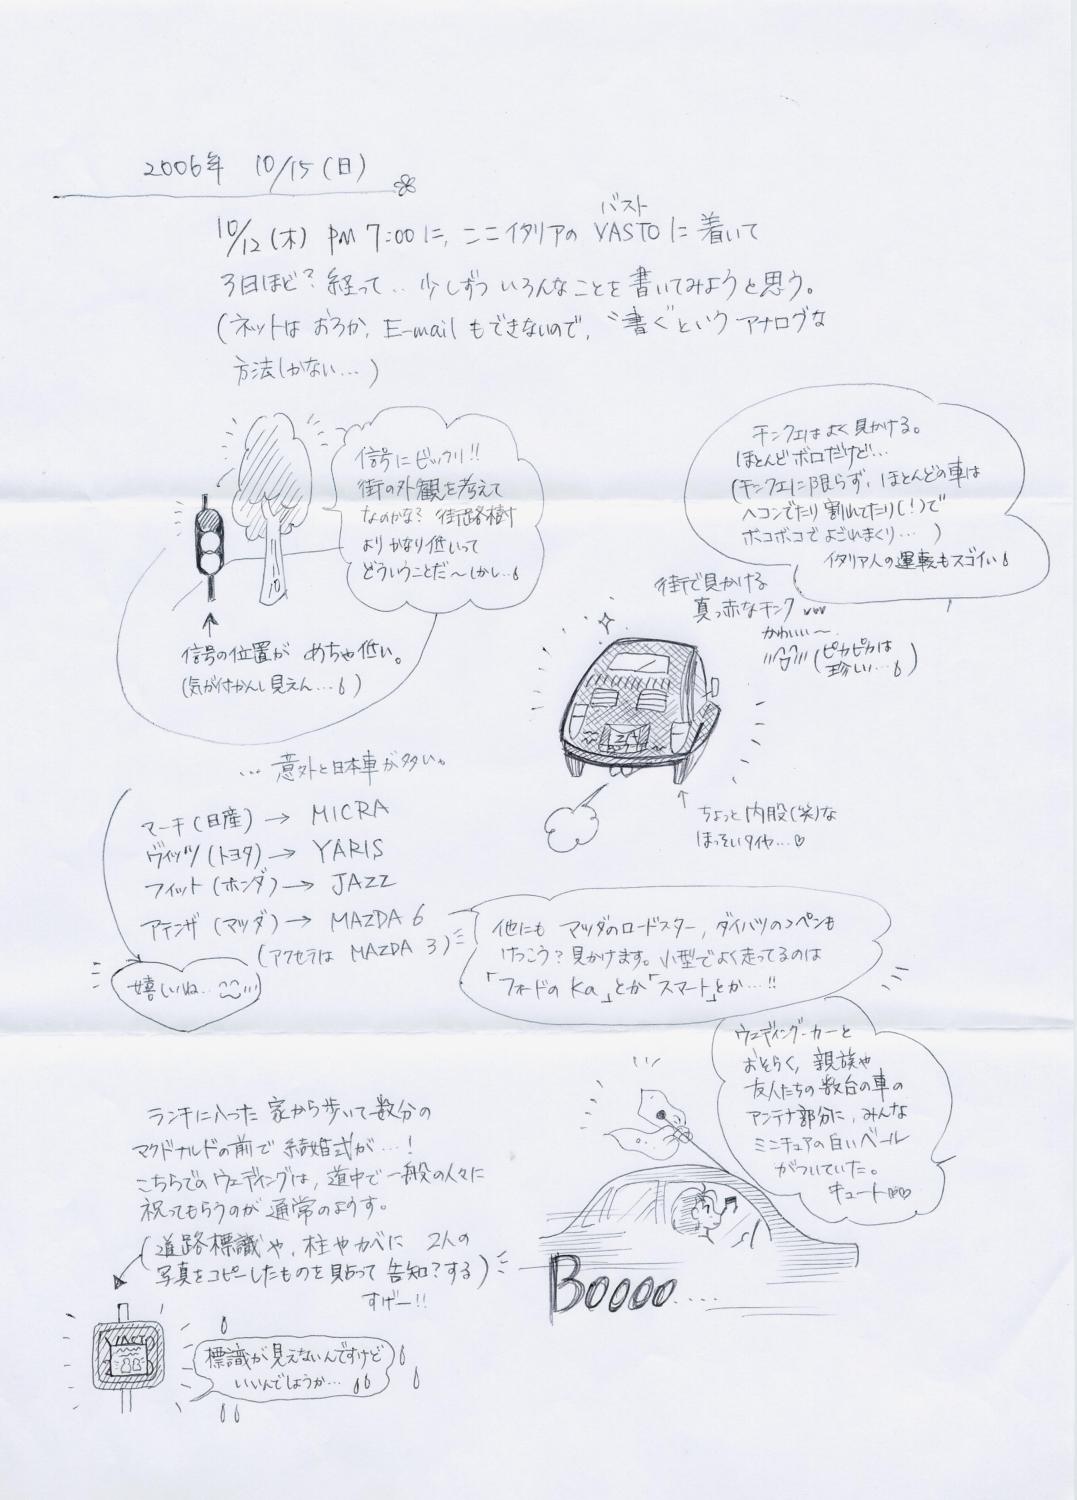 2006年 10/15(日)
バスト
10/12(木) PM 7:00に、ここイタリアの VASTOに着いて
3日ほど?経って‥少しずついろんなことを書いてみようと思う。
(ネットはおろか、E-mailもできないので、“書く"というアナログな
方法しかない…)
信号にビックリ!!
街の外観を考えて
なのかな?街路樹
よりかなり低いって
どういうことだ〜しかし…
信号の位置が めちゃ低い。
(気が付かんし見えん…)
チンクェはよく見かける。
ほとんどボロだけど…
(チンクェに限らず、ほとんどの車は
ヘコンでたり割れてたり(!)で
ボコボコでよごれまくり…)
イタリア人の運転もスゴイい
街で見かける
真っ赤なチンク
かわいい〜
(ピカピカは
珍しい…)
ちょっと内股(笑)な
ほっそいタイヤ…♡
…意外と日本車が多い。
マーチ(日産)→ MICRA
ヴィッツ(トヨタ)→ YARIS
フィット(ホンダ)→ JAZZ
アテンザ(マツダ)→ MAZDA 6
(アクセラは MAZDA 3)
嬉しいね…
他にも マツダのロードスター、ダイハツのコペンも
けっこう?見かけます。小型でよく走ってるのは
「フォードの Ka」とか「スマート」とか…!!
ウェディングカーと
おそらく、親族や
友人たちの数台の車の
アンテナ部分に、みんな
ミニチュアの白いベール
がついていた。
キュート♡♡
ランチに入った 家から歩いて数分の
マクドナルドの前で 結婚式が…!
こちらでのウェディングは、道中で一般の人々に
祝ってもらうのが 通常のようす。
(道路標識や、柱やカベに 2人の
写真をコピーしたものを貼って 告知?する)
すげー!!
Boooo....
VASTO
標識が見えないんですけど
いいんでしょうか…